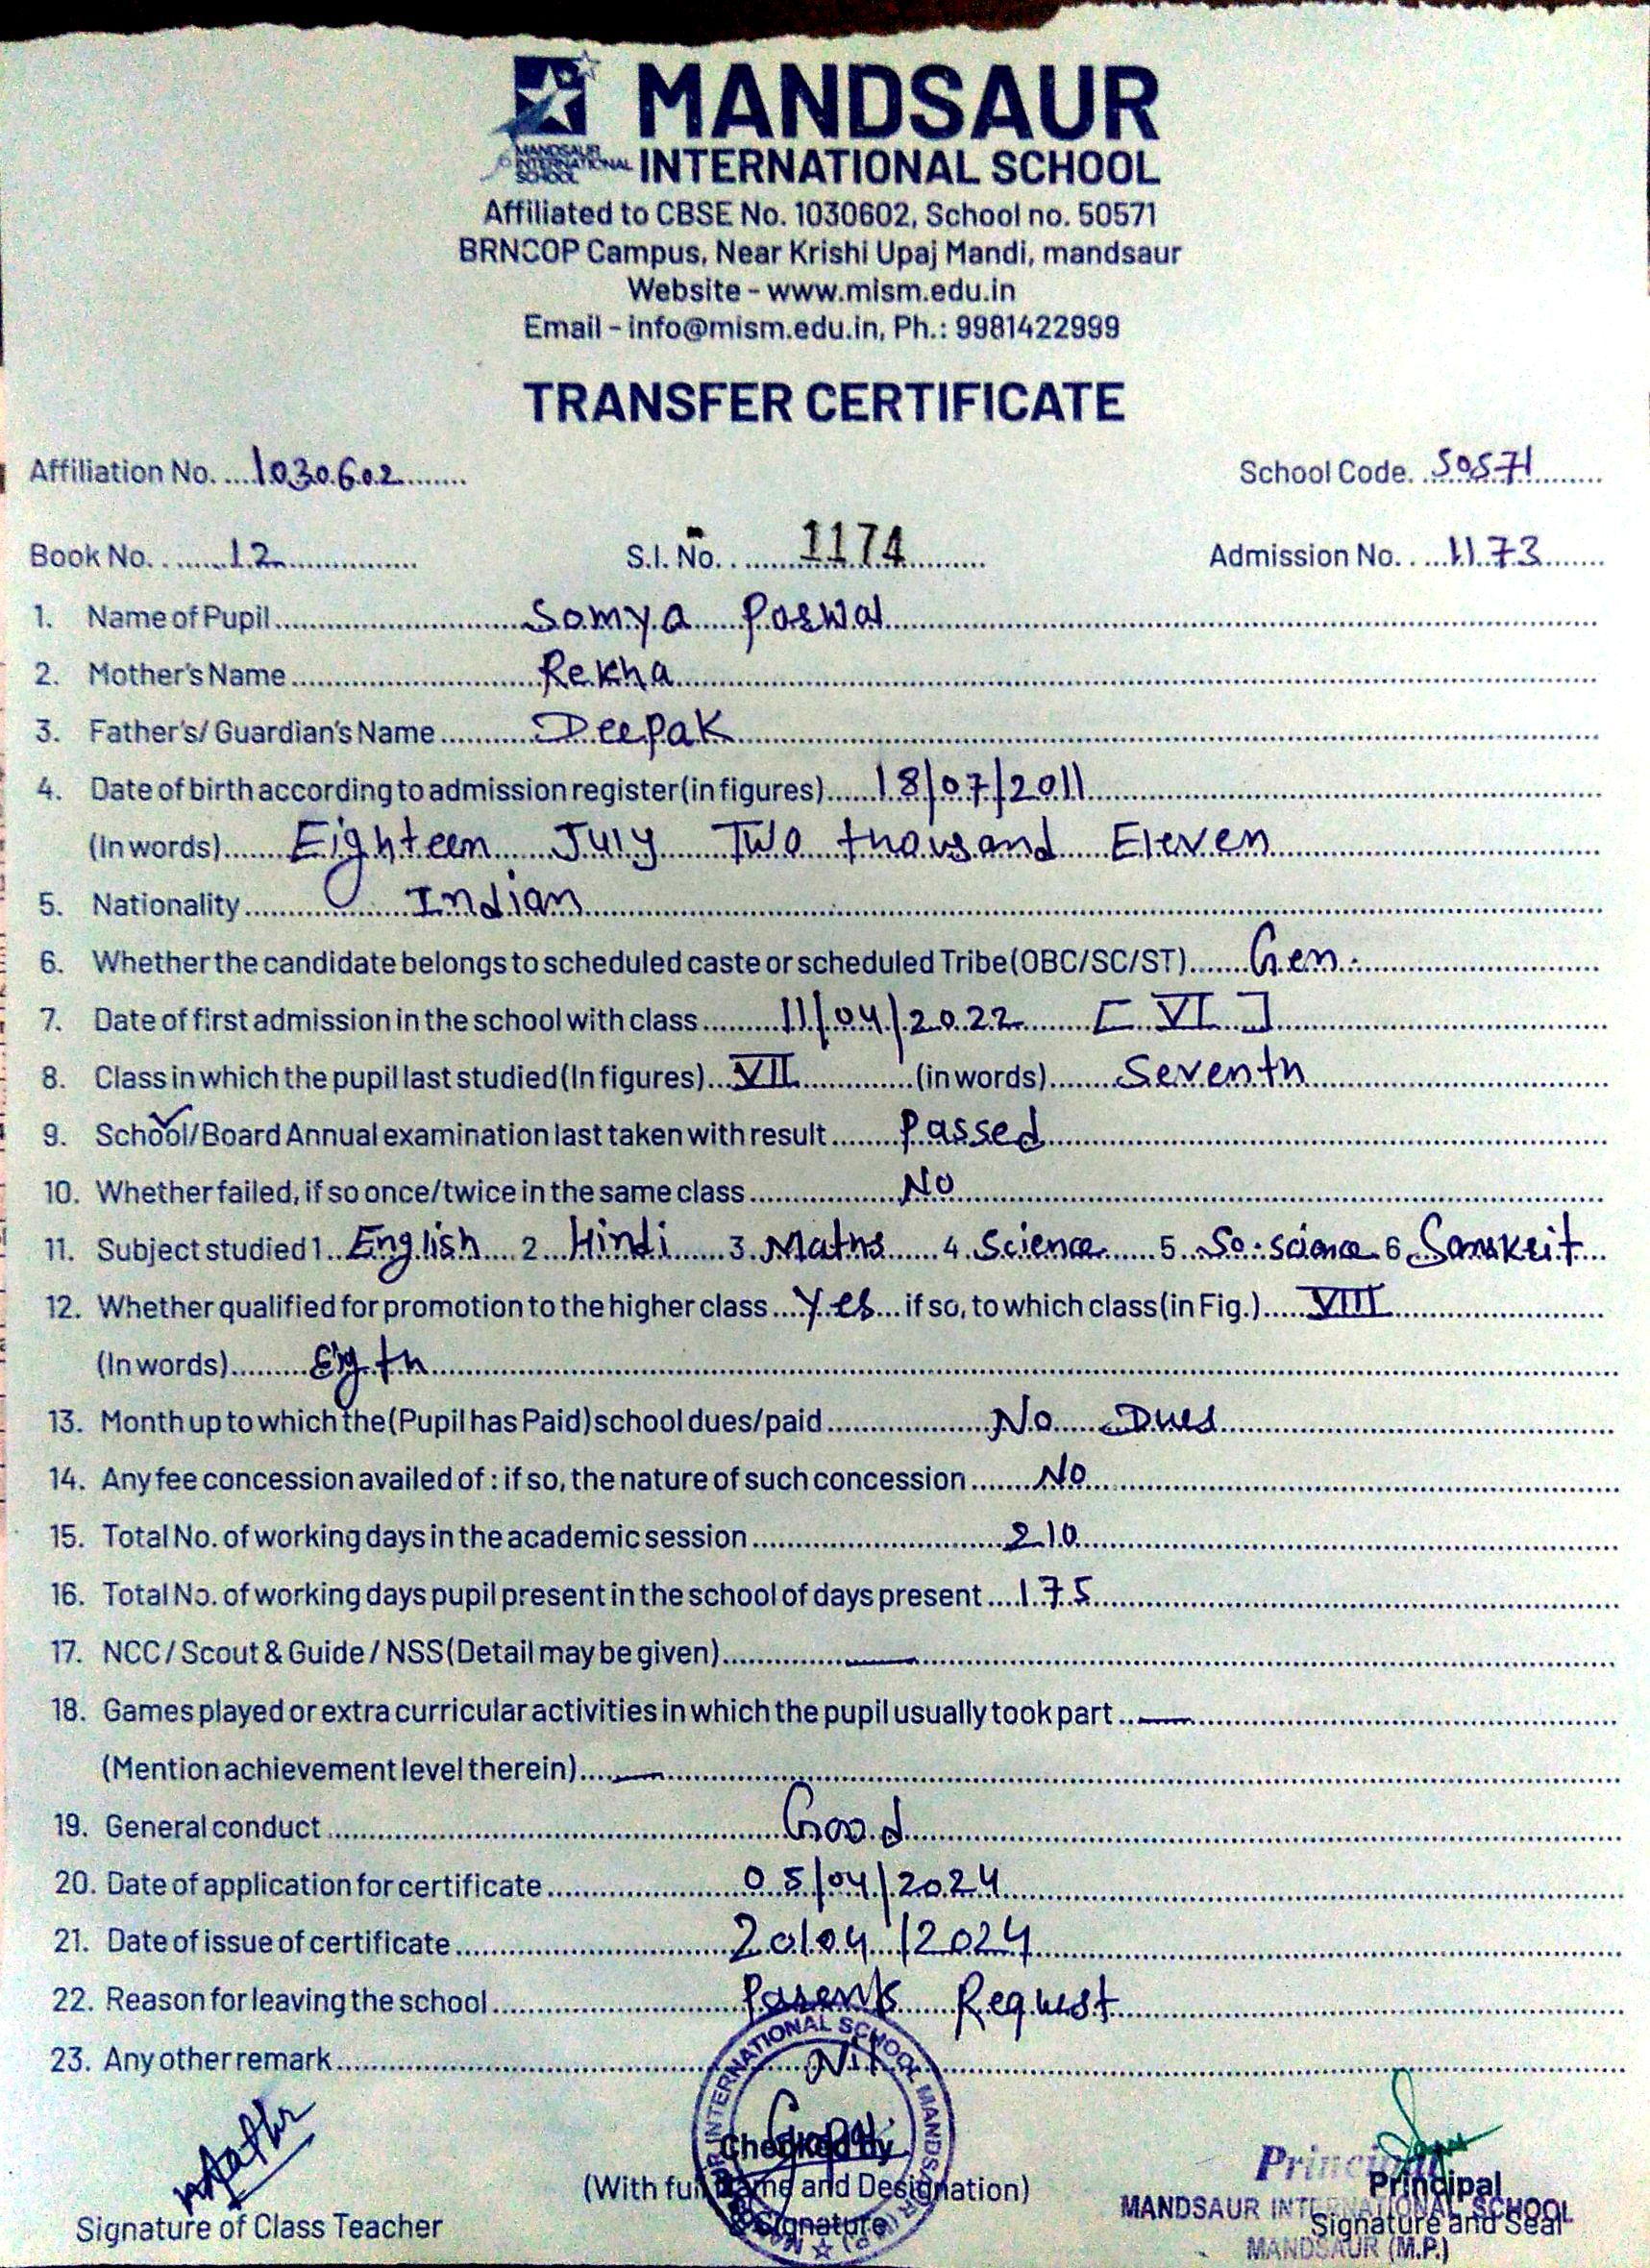 MANDSAUR
INTERNATIONAL SCHOOL
MANDSAUR
INTERNATIONAL
SCHOOL
Affiliated to CBSE No. 1030602, School no. 50571
BRNCOP Campus, Near Krishi Upaj Mandi, mandsaur
Website - www.mism.edu.in
Email - info@mism.edu.in, Ph.: 9981422999
TRANSFER CERTIFICATE
Affiliation No. 1030602 School Code. 50571
Book No. 12 S.I. No. 1174 Admission No. 1173
1. Name of Pupil Somya Poswal
2. Mother's Name Rekha
3. Father's/ Guardian's Name Deepak
4. Date of birth according to admission register (in figures) 18/07/2011
(In words) Eighteen July Two thousand Eleven
5. Nationality Indian
6. Whether the candidate belongs to scheduled caste or scheduled Tribe (OBC/SC/ST) Gen.
7. Date of first admission in the school with class 11/04/2022 [VI]
8. Class in which the pupil last studied (In figures) VII (in words) Seventh
9. School/Board Annual examination last taken with result Passed
10. Whether failed, if so once/twice in the same class No
11. Subject studied 1 English 2 Hindi 3 Maths 4 Science 5 So. science 6 Sanskrit
12. Whether qualified for promotion to the higher class Yes if so, to which class (in Fig.) VIII
(In words) Eigth
13. Month up to which the (Pupil has Paid) school dues/paid No Dues
14. Any fee concession availed of : if so, the nature of such concession No
15. Total No. of working days in the academic session 210
16. Total No. of working days pupil present in the school of days present 175
17. NCC / Scout & Guide / NSS (Detail may be given)
18. Games played or extra curricular activities in which the pupil usually took part
(Mention achievement level therein)
19. General conduct Good
20. Date of application for certificate 05/04/2024
21. Date of issue of certificate 20/04/2024
22. Reason for leaving the school Parents Request
23. Any other remark Nil
INTERNATIONAL SCHOOL MANDSAUR (M.P.)
Checked by
(With full Name and Designation)
& Signature
Signature of Class Teacher
Principal
MANDSAUR INTERNATIONAL SCHOOL
MANDSAUR (M.P.)
Principal
Signature and Seal